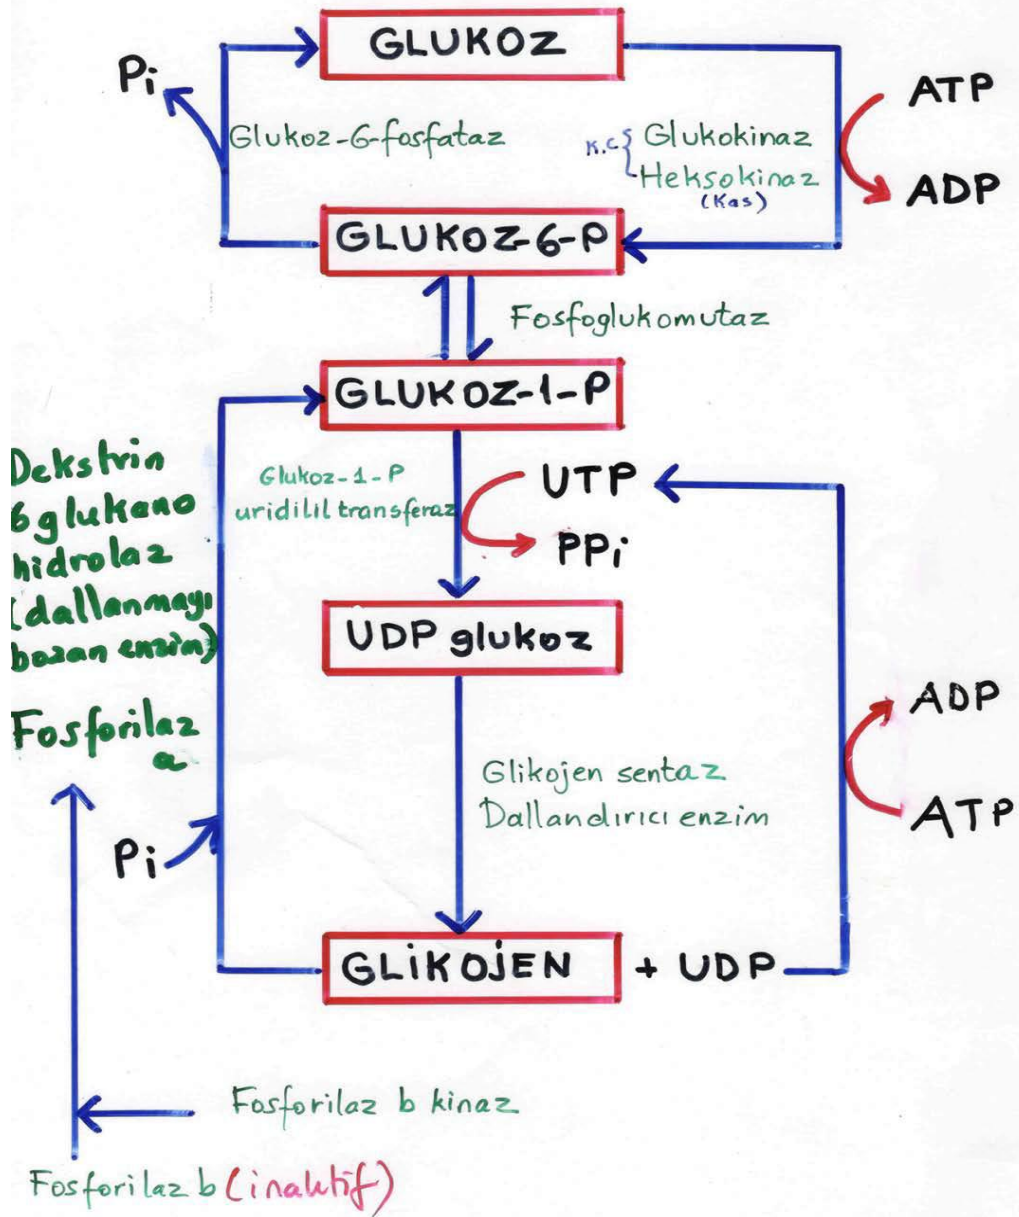 GLUKOZ
Pi
ATP
Glukoz-6-fosfataz
K.C
Glukokinaz
Heksokinaz
(Kas)
ADP
GLUKOZ-6-P
Fosfoglukomutaz
GLUKOZ-1-P
Dekstrin
6 glukano
hidrolaz
(dallanmayı
bozan enzim)
Glukoz-1-P
uridilil transferaz
UTP
PPi
UDP glukoz
Fosforilaz
a
ADP
Glikojen sentaz
Dallandırıcı enzim
ATP
Pi
GLİKOJEN + UDP
Fosforilaz b kinaz
Fosforilaz b (inaktif)